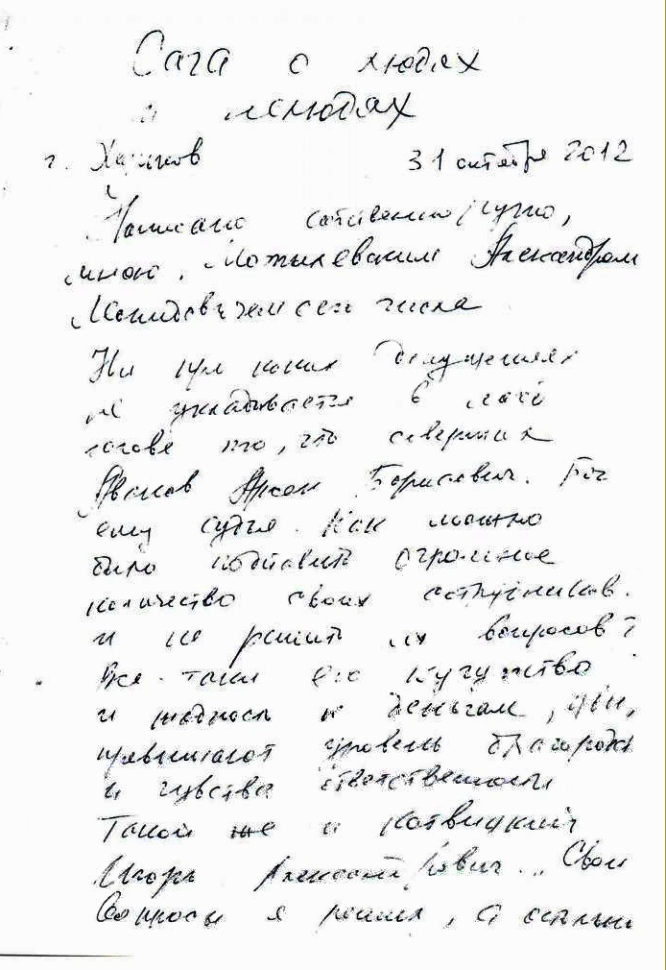 Сага о людях
и нелюдях
г. Харьков 31 октября 2012
Написано собственноручно,
мною, Могилевским Александром
Леонидовичем сего числа
Ни при каких допущениях
не укладывается в моей
голове то, что совершил
Аваков Арсен Борисович. Бог
ему судья. Как можно
было подставить огромное
количество своих сотрудников.
и не решить их вопросов?
Все-таки его
и жадность к деньгам,
превышают уровень
и чувства ответственности
Такой же и Котвицкий
Игорь Александрович.. Свои
вопросы я решил, а остальн